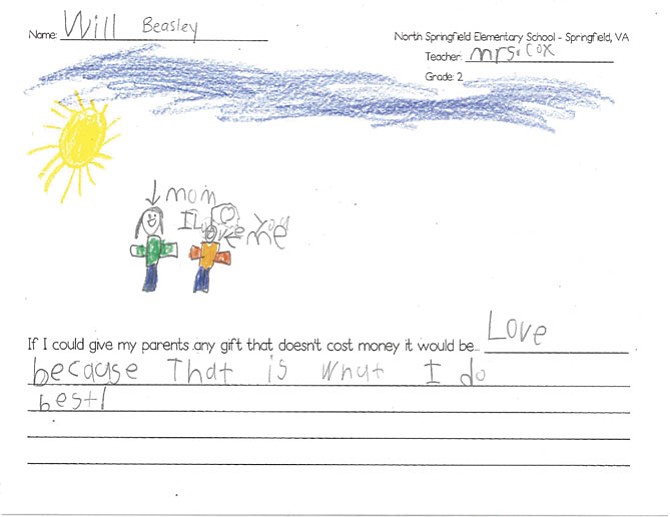 Name: Will Beasley
North Springfield Elementary School - Springfield, VA
Teacher: mrs. Cox
Grade: 2
mom
I Love You
me
If I could give my parents any gift that doesn't cost money it would be... Love
because That is What I do
best!